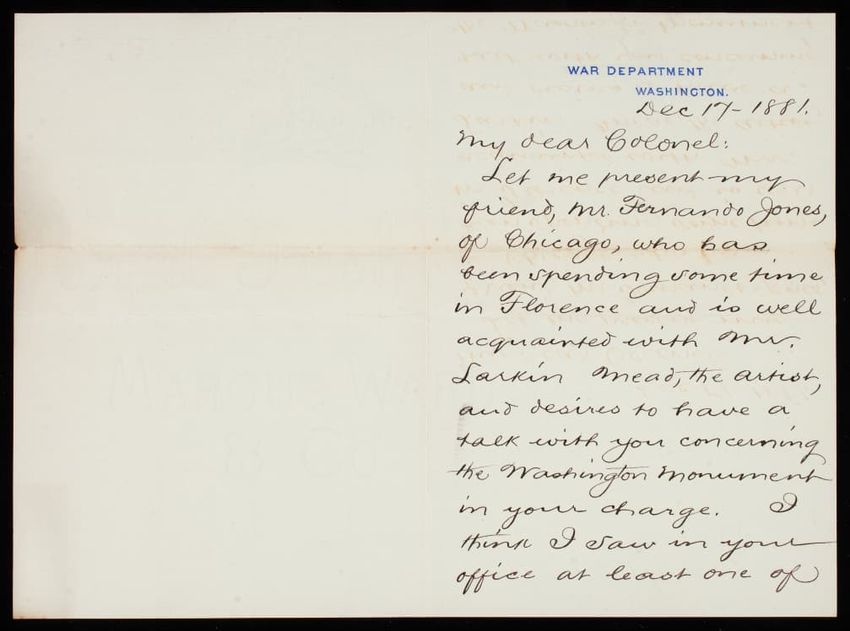 WAR DEPARTMENT
WASHINGTON.
Dec 17- 1881.
My dear Colonel:
Let me present my
friend, Mr. Fernando Jones,
of Chicago, who has
been spending some time
in Florence and is well
acquainted with Mr.
Larkin Mead, the artist,
and desires to have a
talk with you concerning
the Washington Monument
in your charge. I
think I saw in your
office at least one of